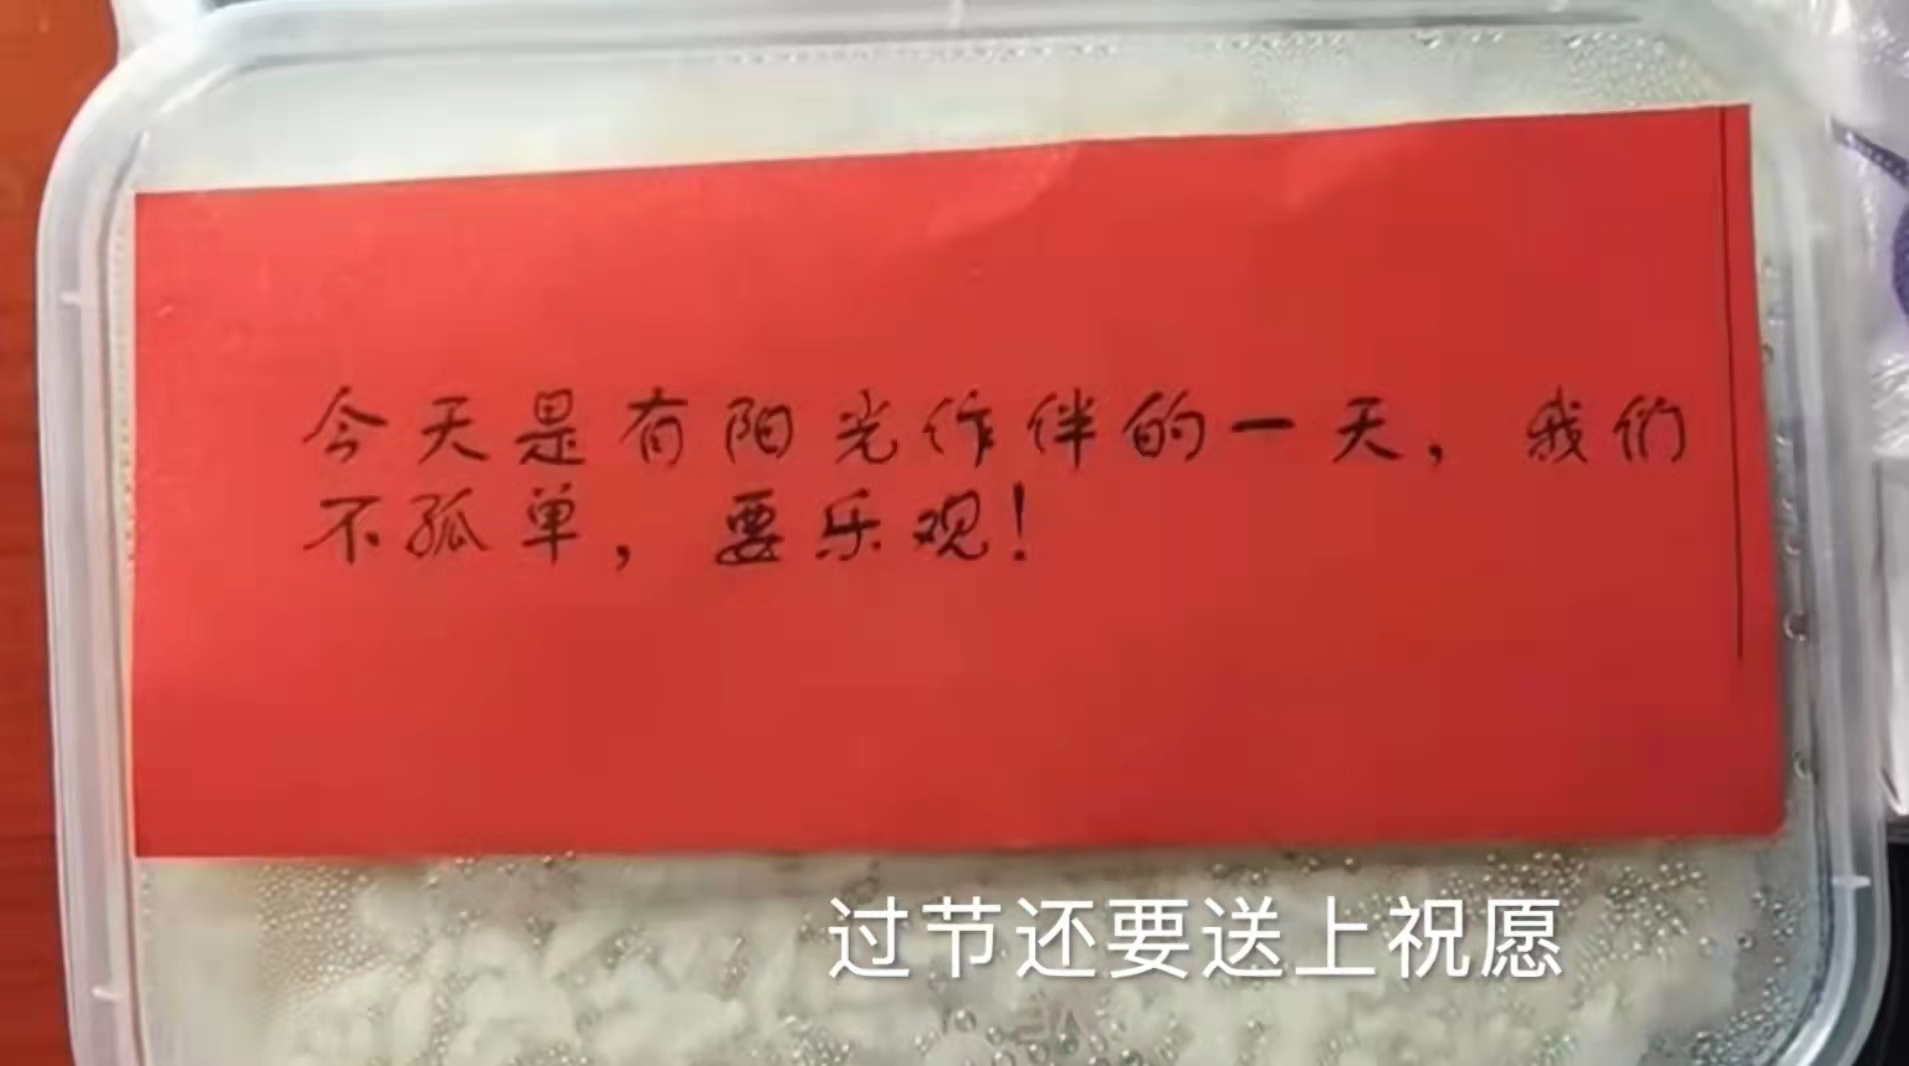 今天是有阳光作伴的一天，我们
不孤单，要乐观！
过节还要送上祝愿